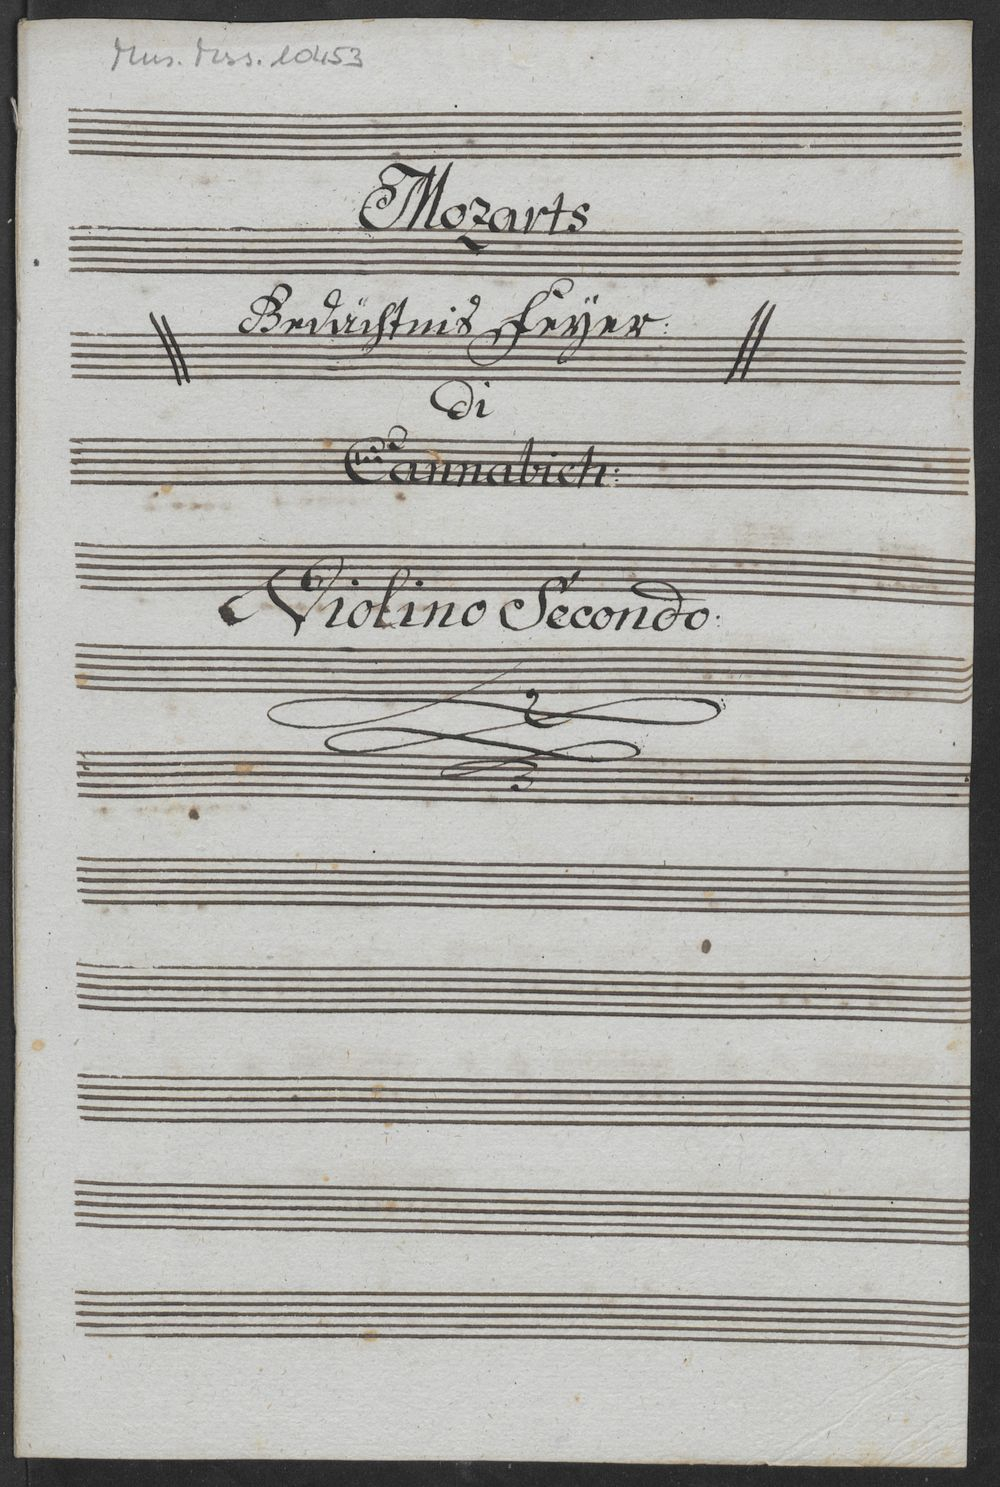 Mus. Mss. 10453
Mozarts
Gedächtnis Feÿer:
di
Cannabich:
Violino Secondo: